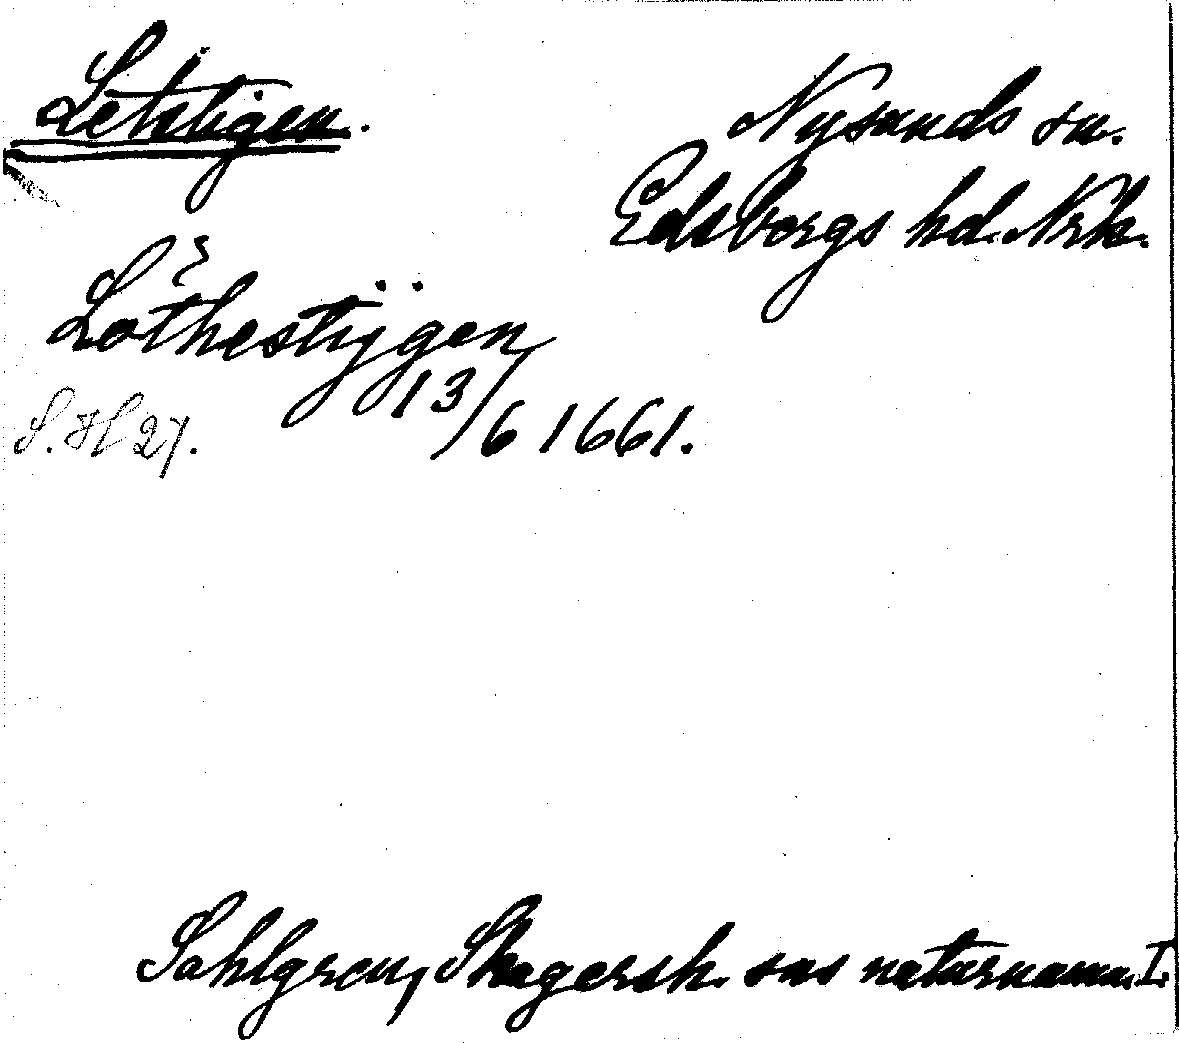 Letstigen.
Nysunds sn.
Edsbergs hd. Nrk.
Lothestijgen
13/6 1661.
S. H 27.
Sahlgren, Skagersh. sns naturnamn. I.